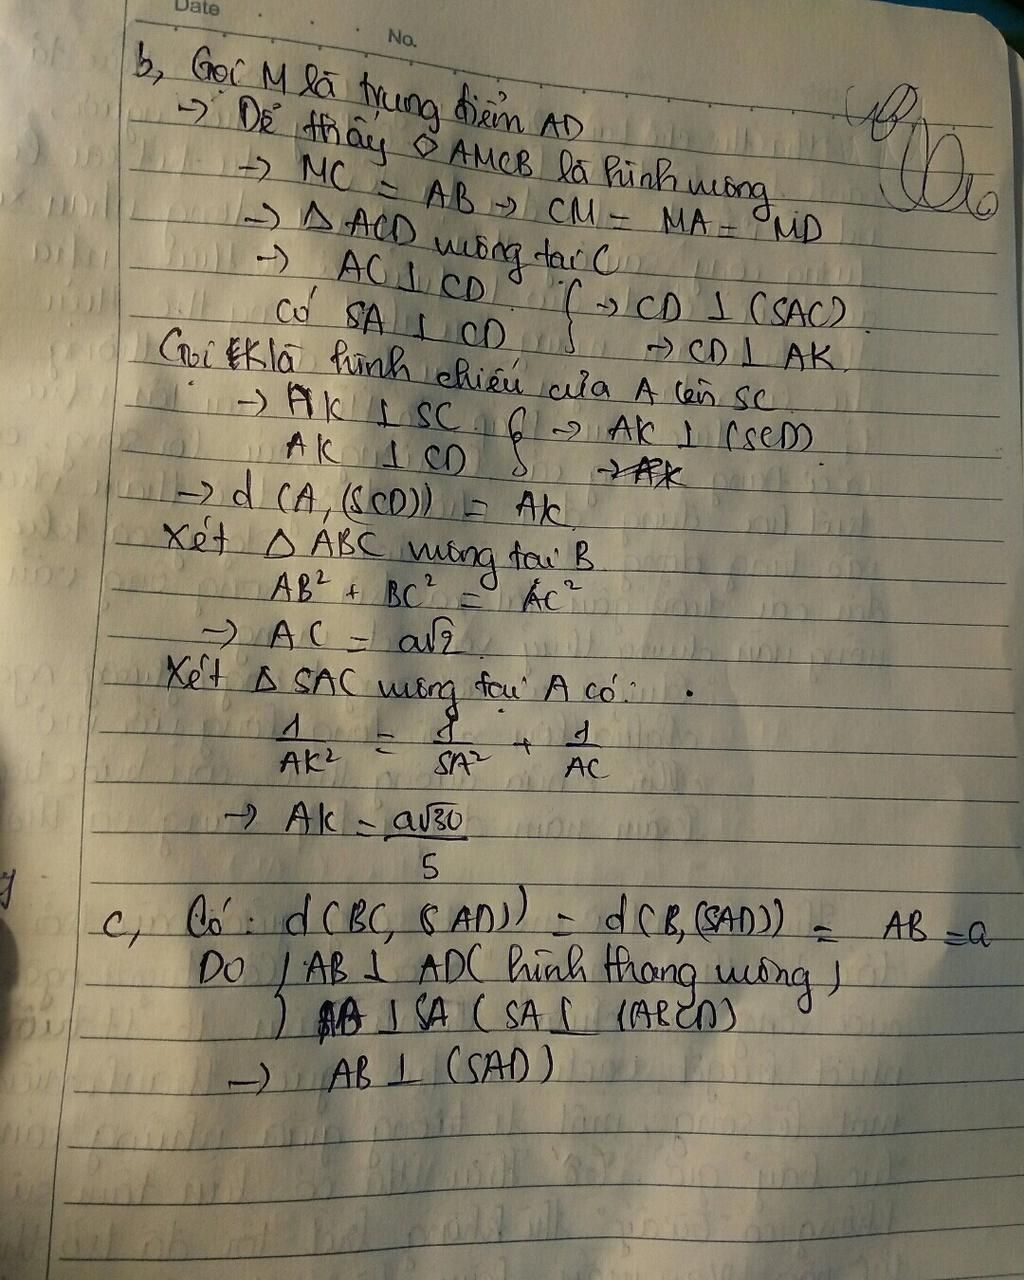 Date
No.
b, Gọi M là trung điểm AD
→ Dễ thấy ◇ AMCB là hình vuông
→ MC = AB → CM = MA = MD
→ Δ ACD vuông tại C
→ AC ⊥ CD } → CD ⊥ (SAC)
Có SA ⊥ CD → CD ⊥ AK
Gọi K là hình chiếu của A lên SC
→ AK ⊥ SC } → AK ⊥ (SCD)
AK ⊥ CD
→ d (A, (SCD)) = AK
Xét Δ ABC vuông tại B
AB² + BC² = AC²
→ AC = a√2
Xét Δ SAC vuông tại A có:
1/AK² = 1/SA² + 1/AC
→ AK = a√30/5
c, Có: d(BC, (SAD)) = d(B, (SAD)) = AB = a
Do { AB ⊥ AD ( hình thang vuông )
AB ⊥ SA ( SA ⊥ (ABCD)
→ AB ⊥ (SAD)